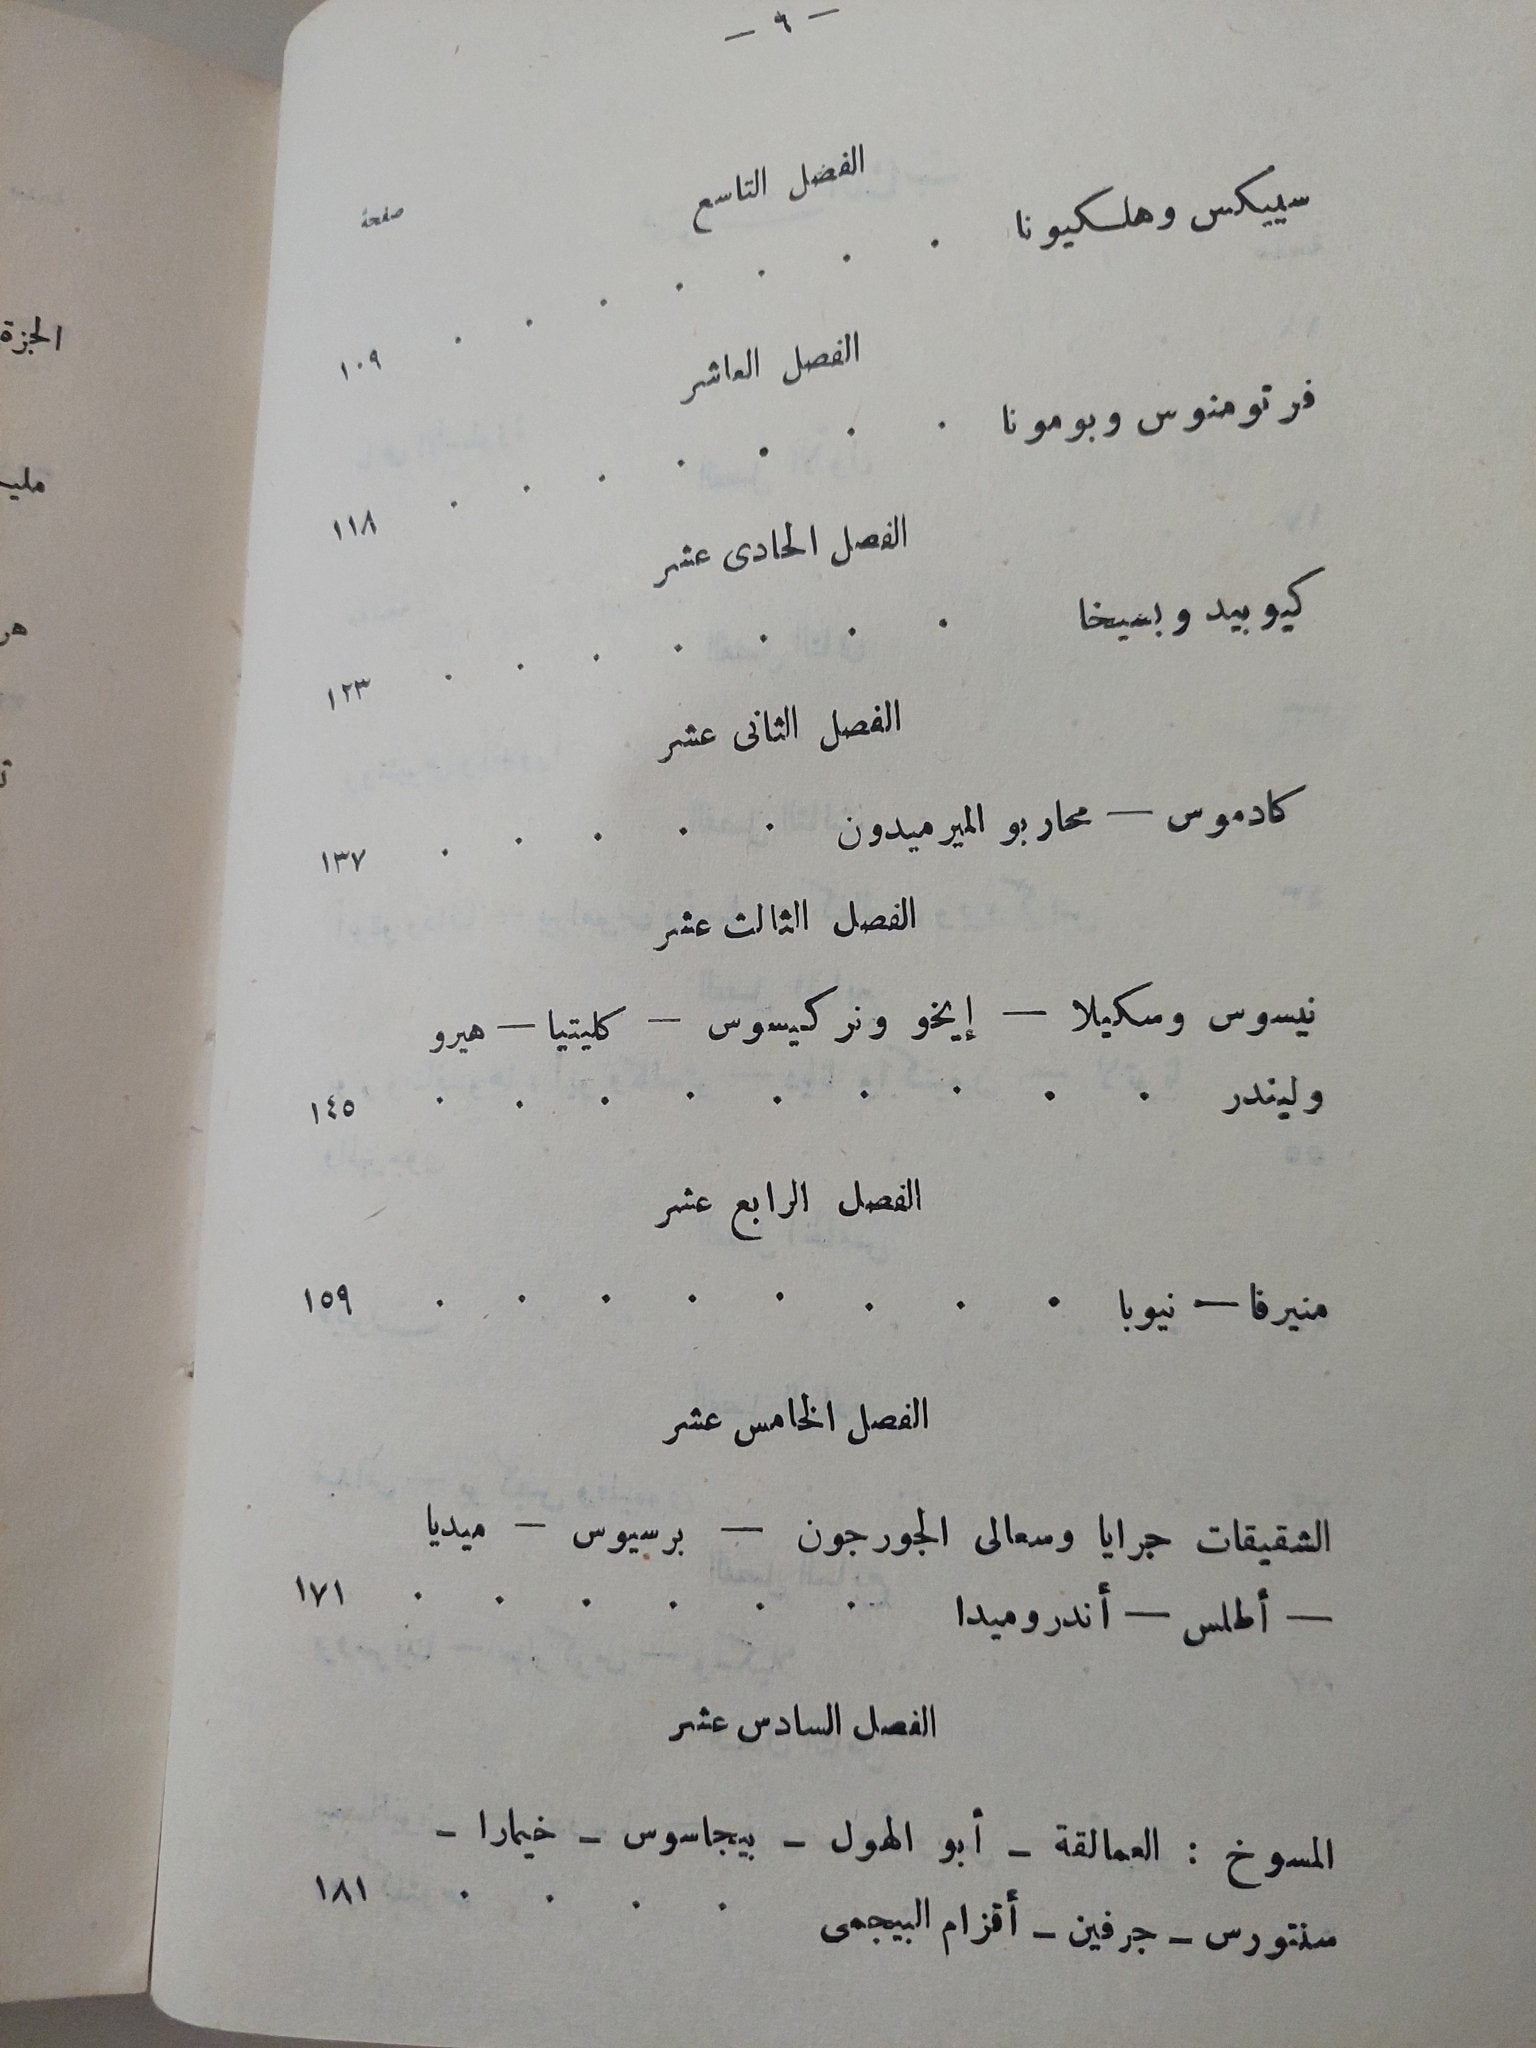 — ٦ —
الفصل التاسع
صفحة
سييكس وهلسكيونا . . . . . . . . ١٠٩
الفصل العاشر
فرتومنوس وبومونا . . . . . . . ١١٨
الفصل الحادى عشر
كيوبيد وبسيخا . . . . . . . ١٢٣
الفصل الثانى عشر
كادموس — محاربو الميرميدون . . . . . ١٣٧
الفصل الثالث عشر
نيسوس وسكيلا — إيخو ونركيسوس — كليتيا — هيرو
وليندر . . . . . . . . . ١٤٥
الفصل الرابع عشر
منيرفا — نيوبا . . . . . . . . ١٥٩
الفصل الخامس عشر
الشقيقات جرايا وسعالى الجورجون — برسيوس — ميديا
— أطلس — أندروميدا . . . . . . ١٧١
الفصل السادس عشر
المسوخ : العمالقة – أبو الهول – بيجاسوس – خيمارا –
سنتورس – جرفين – أقزام البيجمى . . . . ١٨١
الجزة